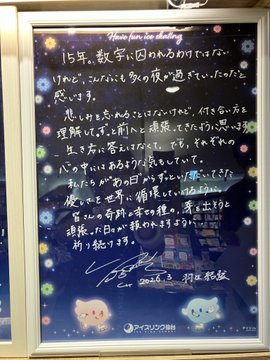 Have fun ice skating
15年。数字に囚われるわけではない
けれど、こんなにも多くの夜が過ぎていったのだと
感じます。
悲しみを忘れることはないけれど、付き合い方を
理解して、ずっと前へと頑張ってきたように思います。
生き方に答えはなくて、でも、それぞれの
心の中にはあるような気もしていて。
私たちが"あの日"からずっといただいてきた
優しさを世界に循環していけるように。
皆さんの奇跡が幸せの種の、芽を出そうと
頑張った日々が報われますように。
祈り続けます。
2026.
羽生結弦
アイスリンク仙台